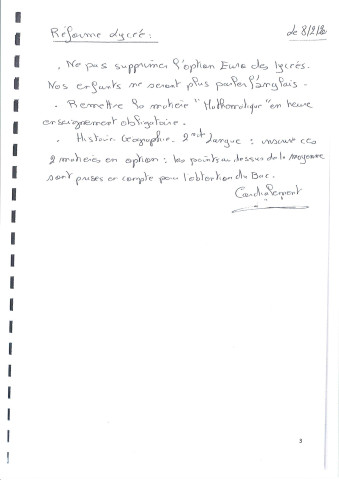 Réforme Lycée : le 8/2/20
. Ne pas supprimer l'option Euro des lycées.
Nos enfants ne seront plus parler l'anglais.
. Remettre la matière "Mathématique" en heure
enseignement obligatoire.
. Histoire Géographie. 2nd Langue : ces
2 matières en option : les points au dessus de la moyenne
sont prises en compte pour l'obtention du Bac.
3